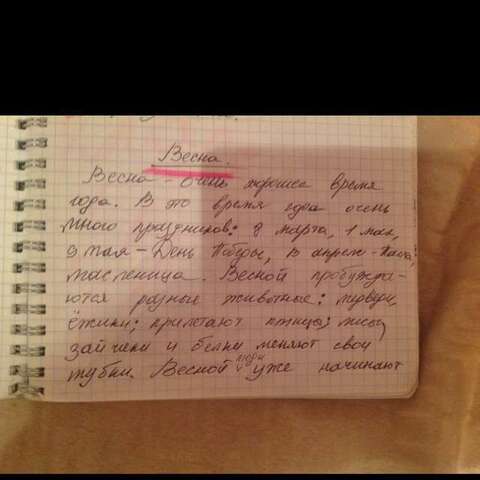 Весна.
Весна - очень хорошее время
года. В это время года очень
много праздников: 8 марта, 1 мая,
9 мая - День Победы, в апреле - Пасха,
масленица. Весной пробужда-
ются разные животные: медведи,
ёжики; прилетают птицы; лисы,
зайчики и белки меняют свои
шубки. Весной люди уже начинают